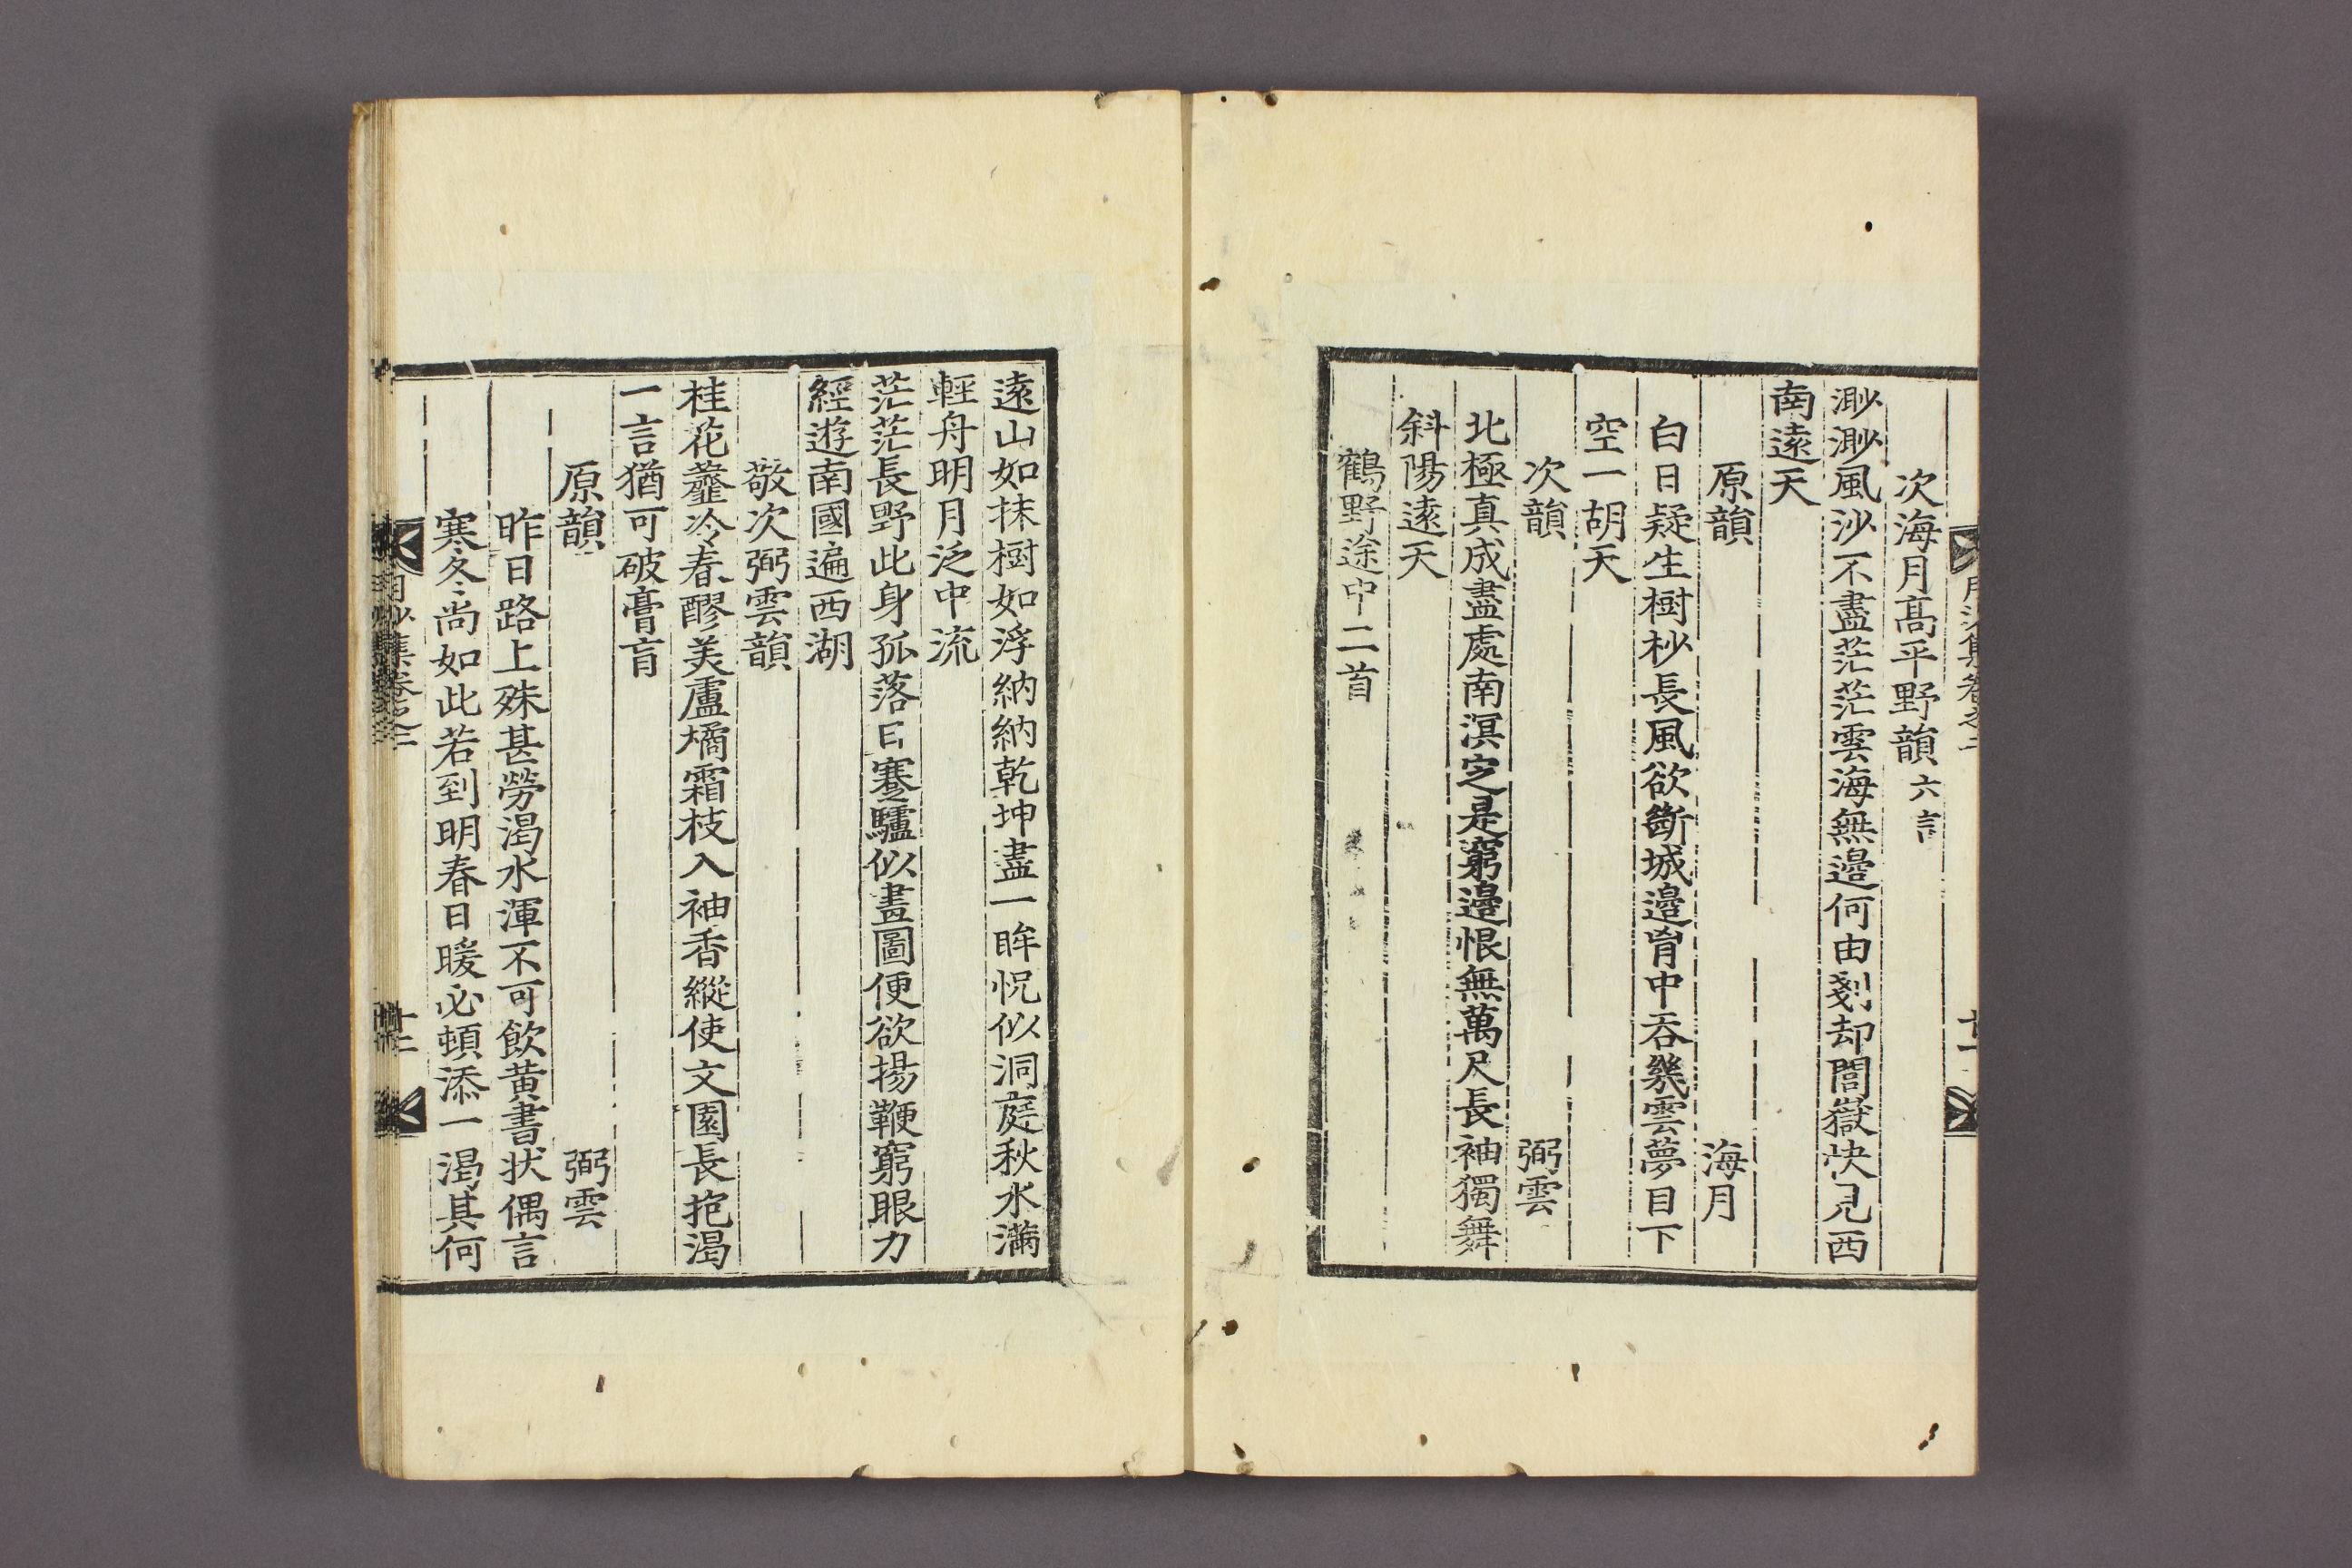 次海月高平野韻 六言
渺渺風沙不盡茫茫雲海無邉何由剗却閭嶽快見西
南遠天
原韻 海月
白日疑生樹杪長風欲斷城邉胷中吞幾雲夢目下
空一胡天
次韻 弼雲
北極真成盡處南溟㝎是窮邉恨無萬尺長袖獨舞
斜陽遠天
鶴野途中二首
遠山如抹樹如浮納納乾坤盡一眸怳似洞庭秋水滿
輕舟明月泛中流
茫茫長野此身孤落日蹇驢似畫圖便欲揚鞭窮眼力
經遊南國遍西湖
敬次弼雲韻
桂花虀冷春醪美盧橘霜枝入袖香縱使文園長抱渴
一言猶可破膏肓
原韻 弼雲
昨日路上殊甚勞渴水渾不可飮黄書状偶言
寒冬尚如此若到明春日暖必頓添一渴其何
月沙集卷之二
十二